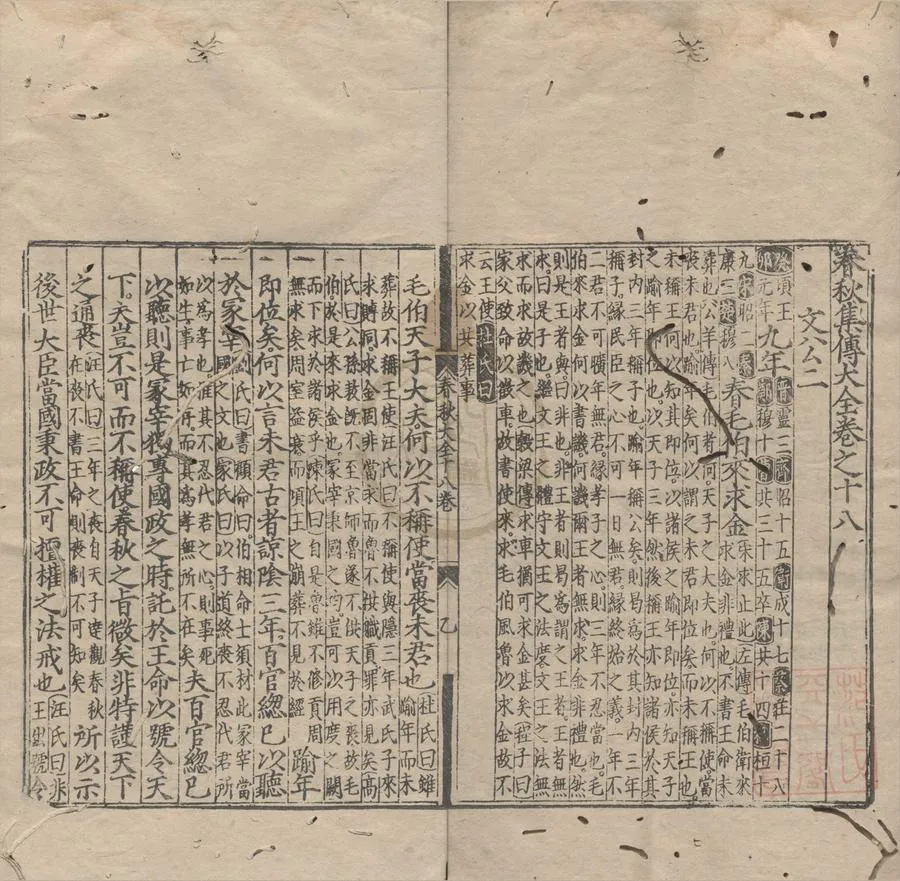 春秋集傳大全卷之十八
文公二
癸頃王
卯元年
九年
晉靈三齊昭十五衛成十七蔡莊二十八
鄭穆十曹共三十五卒陳共十四杞桓十
九宋昭二秦
康三楚穆八
春毛伯來求金
來求止此左傳毛伯衛來
求金非禮也不書王命未
葬也公羊傳毛伯者何天子之大夫也何以不稱使當
喪未君也踰年矣何以謂之未君即位矣而未稱王也
未稱王何以知其即位以諸侯之踰年即位亦知天子
之踰年即位也以天子三年然後稱王亦知諸侯於其
封内三年稱子也踰年稱公矣則曷為於其封内三年
稱子緣民臣之心不可一日無君緣終始之義一年不
二君不可曠年無君緣孝子之心則三年不忍當也毛
伯來求金何以書譏何譏爾王者無求求金非禮也然
則是王者與曰非也非王者則曷為謂之王者王者無
求曰是子也繼文王之體守文王之法度文王之法無
求而求故譏之也穀梁傳求車猶可求金甚矣程子曰
家父致命以徵車故書使來求毛伯風魯以求金故不
云王使杜氏曰
求金以共葬事
春秋大全十八卷
乙
毛伯天子大夫何以不稱使當喪未君也
杜氏曰雖
踰年而未
葬故不稱王使汪氏曰不稱使與隱三年武氏子來
求賻同求金固非當求而魯不共職貢罪亦見矣高
氏曰公孫敖既不至京師魯遂不供天子之喪故毛
伯以是來求金也冢宰制國之用豈可以用度之闕
而下求於諸侯乎陳氏曰自是魯雖不修貢周
無求矣周室益衰而頃王之崩葬不見於經
踰年
即位矣何以言未君古者諒陰三年百官總已以聽
於冢宰
劉氏曰書顧命曰伯相命士須材此冢宰當
國之文也家氏曰以子道終喪不忍代君所
以為孝也惟其不忍代君之心則事死
如生事亡如存而其為孝無所不在矣
夫百官總已
以聽則是冢宰獨專國政之時託於王命以號令天
下夫豈不可而不稱使春秋之旨微矣非特謹天下
之通喪
汪氏曰三年之喪自天子達觀春秋
在喪不書王命則喪制不可知矣
所以示
後世大臣當國秉政不可擅權之法戒也
汪氏曰非
王出號令